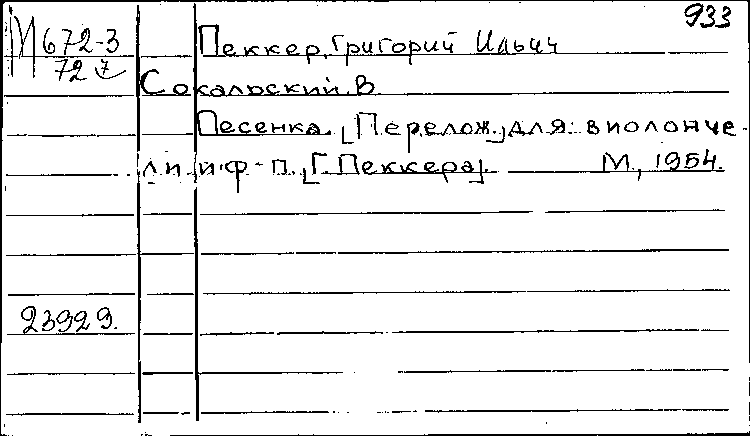 933
М 672-3
72 7
Пеккер, Григорий Ильич
Сокальский В.
Песенка. [Перелож.] для виолонче-
ли и ф-п. [Г. Пеккера]. М., 1954.
23929.